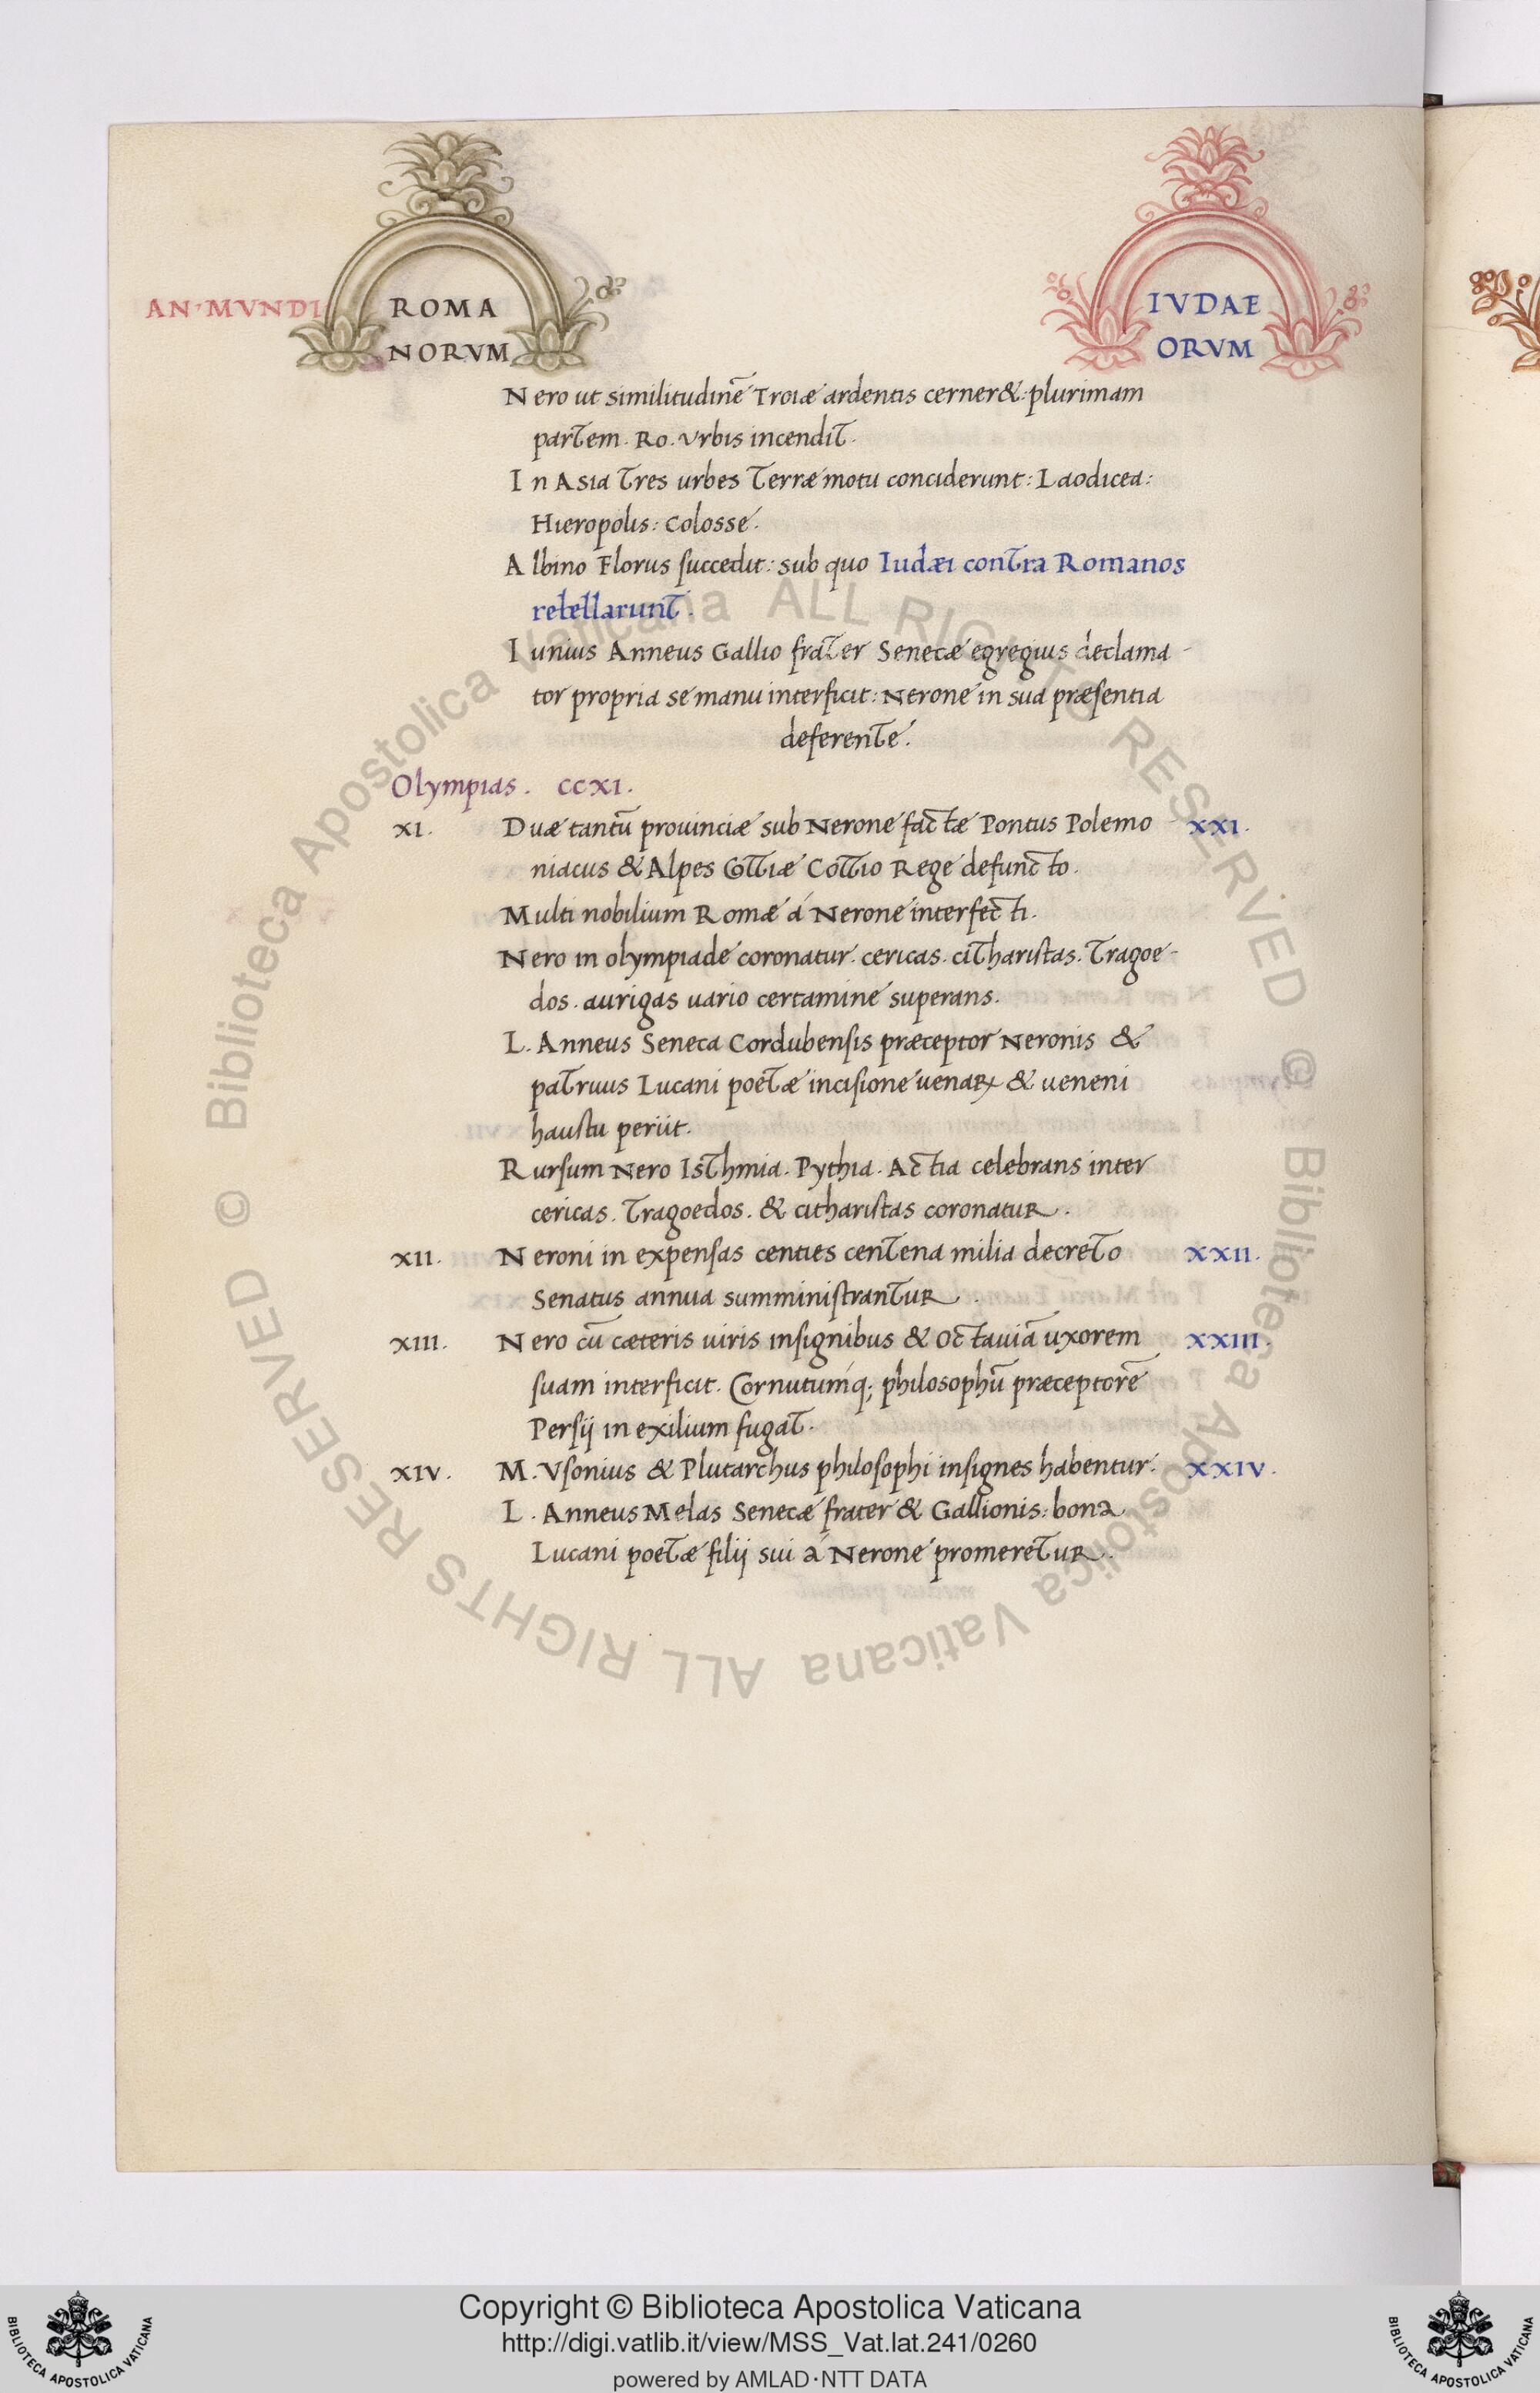 AN·MVNDI ROMA IVDAE
NORVM ORVM
Nero ut similitudinē Troiæ ardentis cerner&: plurimam
partem. Ro. Vrbis incendit.
In Asia tres urbes terræ motu conciderunt: Laodicea:
Hieropolis: Colosse.
Albino Florus succedit: sub quo Iudæi contra Romanos
rebellarunt.
Iunius Anneus Gallio frater Senecæ egregius declama-
tor propria se manu interficit: Nerone in sua præsentia
deferente.
Olympias. CCXI.
XI. Duæ tantū prouinciæ sub Nerone factæ Pontus Polemo- XXI.
niacus & Alpes Cottiæ Cottio Rege defuncto.
Multi nobilium Romæ á Nerone interfecti.
Nero in olympiade coronatur. cericas. citharistas. Tragoe-
dos. aurigas uario certamine superans.
L. Anneus Seneca Cordubensis præceptor Neronis &
patruus Lucani poetæ incisione uenaꝝ & ueneni
haustu periit.
Rursum Nero Isthmia. Pythia. Actia celebrans inter
cericas. Tragoedos. & citharistas coronatur.
XII. Neroni in expensas centies centena milia decreto XXII.
Senatus annua sumministrantur.
XIII. Nero cū cæteris uiris insignibus & Octauiā uxorem XXIII.
suam interficit. Cornutumq; philosophū præceptorē
Persij in exilium fugat.
XIV. M. Vsonius & Plutarchus philosophi insignes habentur. XXIV.
L. Anneus Melas Senecæ frater & Gallionis: bona
Lucani poetæ filij sui á Nerone promeretur.
© Biblioteca Apostolica Vaticana ALL RIGHTS RESERVED
© Biblioteca Apostolica Vaticana ALL RIGHTS RESERVED
Copyright © Biblioteca Apostolica Vaticana
http://digi.vatlib.it/view/MSS_Vat.lat.241/0260
powered by AMLAD·NTT DATA
BIBLIOTECA APOSTOLICA VATICANA
BIBLIOTECA APOSTOLICA VATICANA